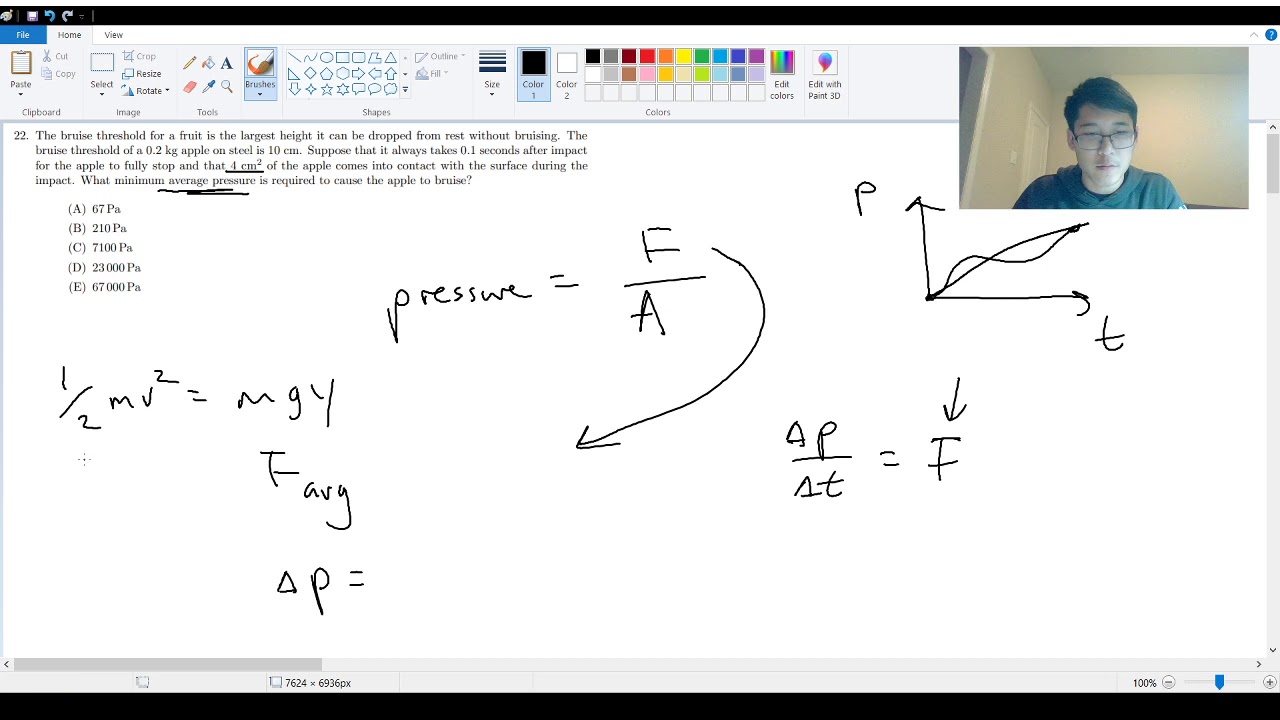 File
Home
View
Cut
Copy
Paste
Clipboard
Crop
Resize
Rotate
Select
Image
A
Tools
Brushes
Outline
Fill
Shapes
Size
Color
1
Color
2
Edit
colors
Edit with
Paint 3D
Colors
22. The bruise threshold for a fruit is the largest height it can be dropped from rest without bruising. The
bruise threshold of a 0.2 kg apple on steel is 10 cm. Suppose that it always takes 0.1 seconds after impact
for the apple to fully stop and that 4 cm² of the apple comes into contact with the surface during the
impact. What minimum average pressure is required to cause the apple to bruise?
(A) 67 Pa
(B) 210 Pa
(C) 7100 Pa
(D) 23 000 Pa
(E) 67 000 Pa
pressure = F/A
P
t
1/2 mv² = mgy
F avg
Δp =
Δp/Δt = F
7624 × 6936px
100%